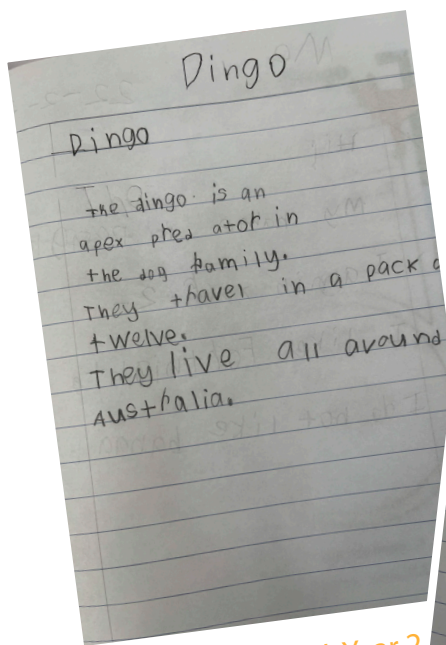 Dingo
Dingo
The dingo is an
apex pred ator in
the dog family.
They travel in a pack
twelve.
They live all around
Australia.